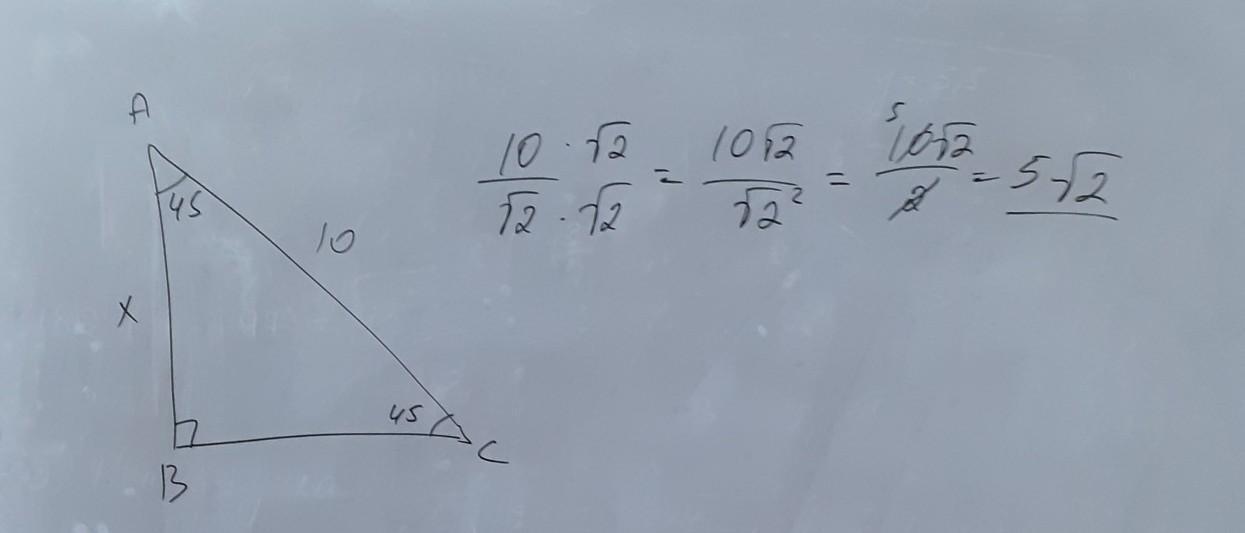 A
45
10
x
45
B
C
10 · √2 / √2 · √2 = 10√2 / √2² = 5 10√2 / 2 = 5√2